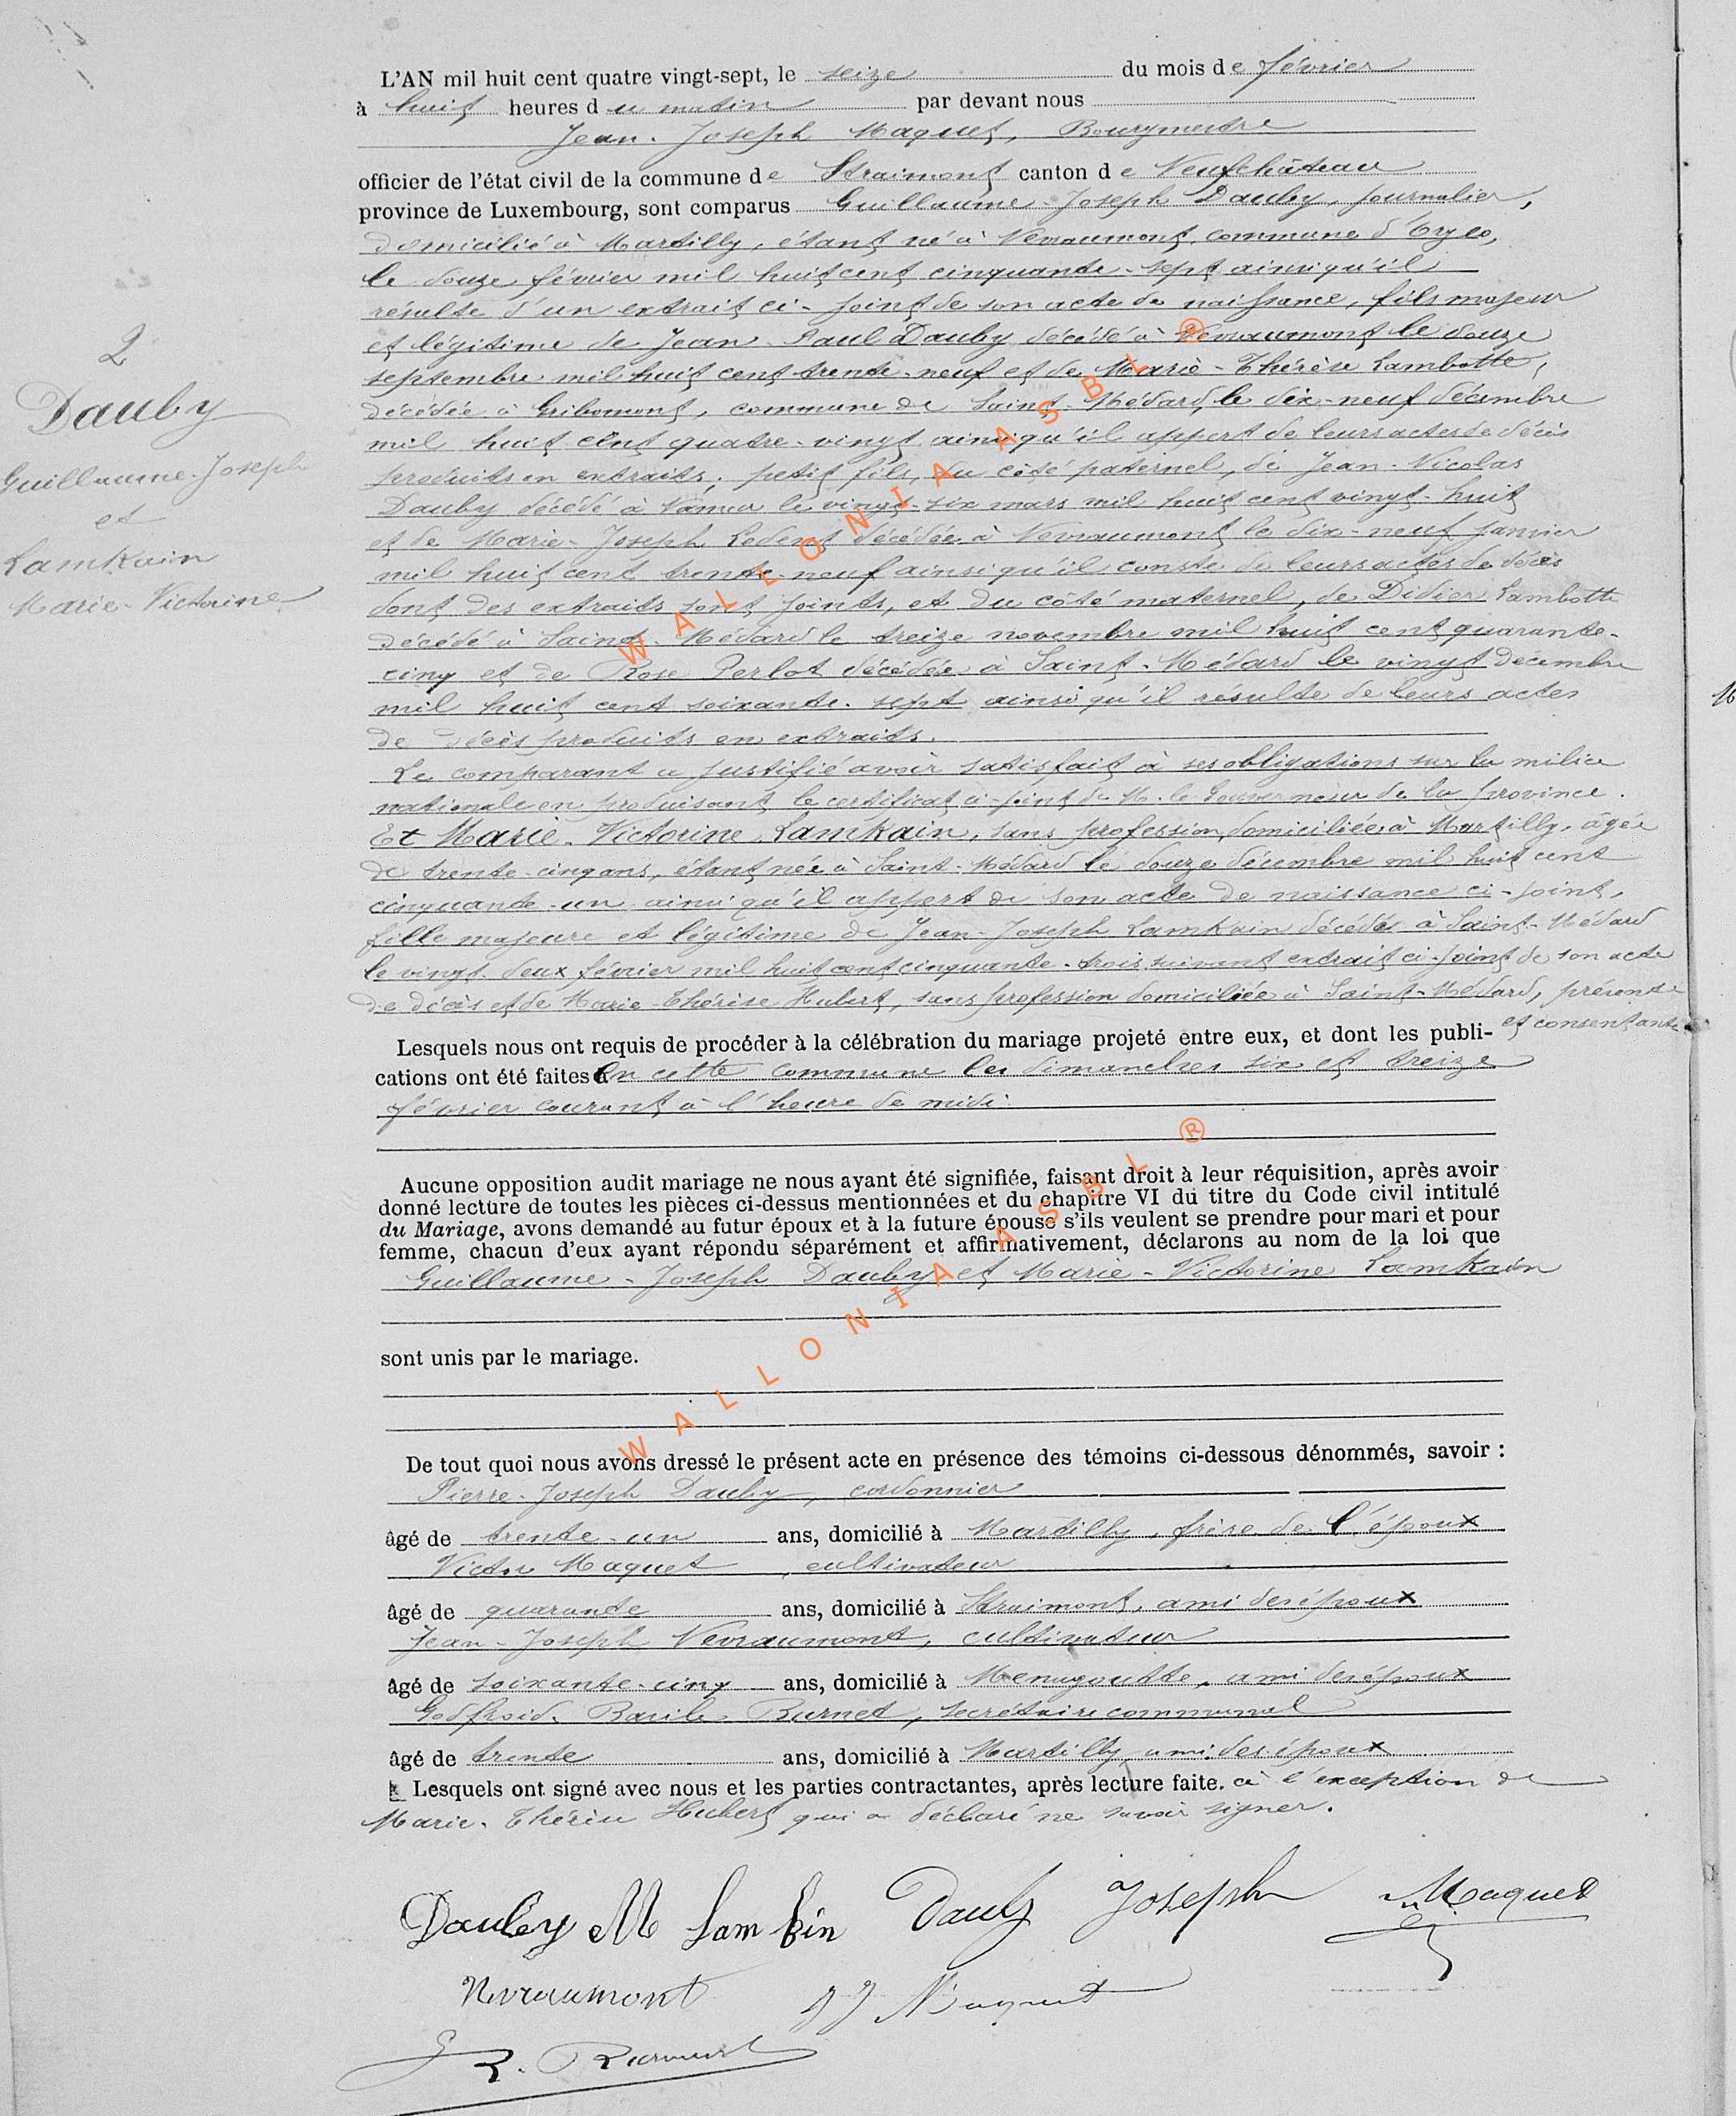 L'AN mil huit cent quatre vingt-sept, le seize du mois de février
à huit heures du matin par devant nous
Jean-Joseph Maquet, Bourgmestre
officier de l'état civil de la commune de Straimont canton de Neufchâteau
province de Luxembourg, sont comparus Guillaume-Joseph Dauby, journalier,
domicilié à Martilly, étant né à Nevraumont, commune d'Orgeo,
le douze février mil huit cent cinquante-sept ainsi qu'il
résulte d'un extrait ci-joint de son acte de naissance, fils majeur
et légitime de Jean-Paul Dauby décédé à Nevraumont le douze
septembre mil huit cent trente-neuf et de Marie-Thérèse Lambotte,
décédée à Gribomont, commune de Saint-Médard, le dix-neuf décembre
mil huit cent quatre-vingt ainsi qu'il appert de leurs actes de décès
produits en extraits; petit fils, du côté paternel, de Jean-Nicolas
Dauby décédé à Namur le vingt-six mars mil huit cent vingt-huit
et de Marie-Joseph Ledent décédée à Nevraumont le dix-neuf janvier
mil huit cent trente-neuf ainsi qu'il conste de leurs actes de décès
dont des extraits sont joints, et du côté maternel, de Didier Lambotte
décédé à Saint-Médard le treize novembre mil huit cent quarante-
cinq et de Rose Perlot décédée à Saint-Médard le vingt décembre
mil huit cent soixante-sept ainsi qu'il résulte de leurs actes
de décès produits en extraits.
Le comparant a justifié avoir satisfait à ses obligations sur la milice
nationale en produisant le certificat ci-joint de M. le Gouverneur de la province.
Et Marie-Victorine Lamkain, sans profession, domiciliée à Martilly, âgée
de trente-cinq ans, étant née à Saint-Médard le douze décembre mil huit cent
cinquante-un ainsi qu'il appert de son acte de naissance ci-joint,
fille majeure et légitime de Jean-Joseph Lamkain décédé à Saint-Médard
le vingt-deux février mil huit cent cinquante-trois suivant extrait ci-joint de son acte
de décès et de Marie-Thérèse Hubert, sans profession domiciliée à Saint-Médard, présente
et consentante
Lesquels nous ont requis de procéder à la célébration du mariage projeté entre eux, et dont les publi-
cations ont été faites en cette commune les dimanches six et treize
février courant à l'heure de midi.
Aucune opposition audit mariage ne nous ayant été signifiée, faisant droit à leur réquisition, après avoir
donné lecture de toutes les pièces ci-dessus mentionnées et du chapitre VI du titre du Code civil intitulé
du Mariage, avons demandé au futur époux et à la future épouse s'ils veulent se prendre pour mari et pour
femme, chacun d'eux ayant répondu séparément et affirmativement, déclarons au nom de la loi que
Guillaume-Joseph Dauby et Marie-Victorine Lamkain
sont unis par le mariage.
De tout quoi nous avons dressé le présent acte en présence des témoins ci-dessous dénommés, savoir :
Pierre-Joseph Dauby, cordonnier
âgé de trente-un ans, domicilié à Martilly, frère de l'époux
Victor Maquet, cultivateur
âgé de quarante ans, domicilié à Straimont, ami des époux
Jean-Joseph Nevraumont, cultivateur
âgé de soixante-cinq ans, domicilié à Menugoutte, ami des époux
Godfroid-Basile Burnet, secrétaire communal
âgé de trente ans, domicilié à Martilly, ami des époux
Lesquels ont signé avec nous et les parties contractantes, après lecture faite. à l'exception de
Marie-Thérèse Hubert qui a déclaré ne savoir signer.
Dauby M Lamkin Dauby Joseph Maquet
Nevraumont JJ Maquet
2
Dauby
Guillaume-Joseph
et
Lamkain
Marie-Victorine
WALLONIA ASBL ®
WALLONIA ASBL ®